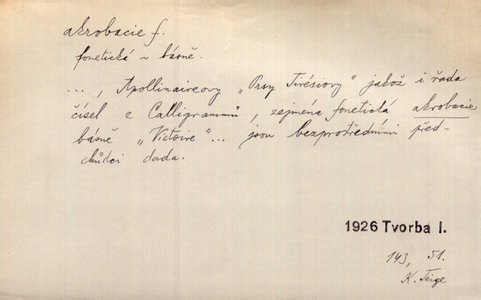 akrobacie f.
fonetická v básně.
..., Apollinaireovy „Prsy Tirésiovy" jakož i řada
čísel z Calligrammů, zejména fonetická akrobacie
básně „Victoire"... jsou bezprostředními před-
chůdci dada.
1926 Tvorba I.
143, 51.
K. Teige